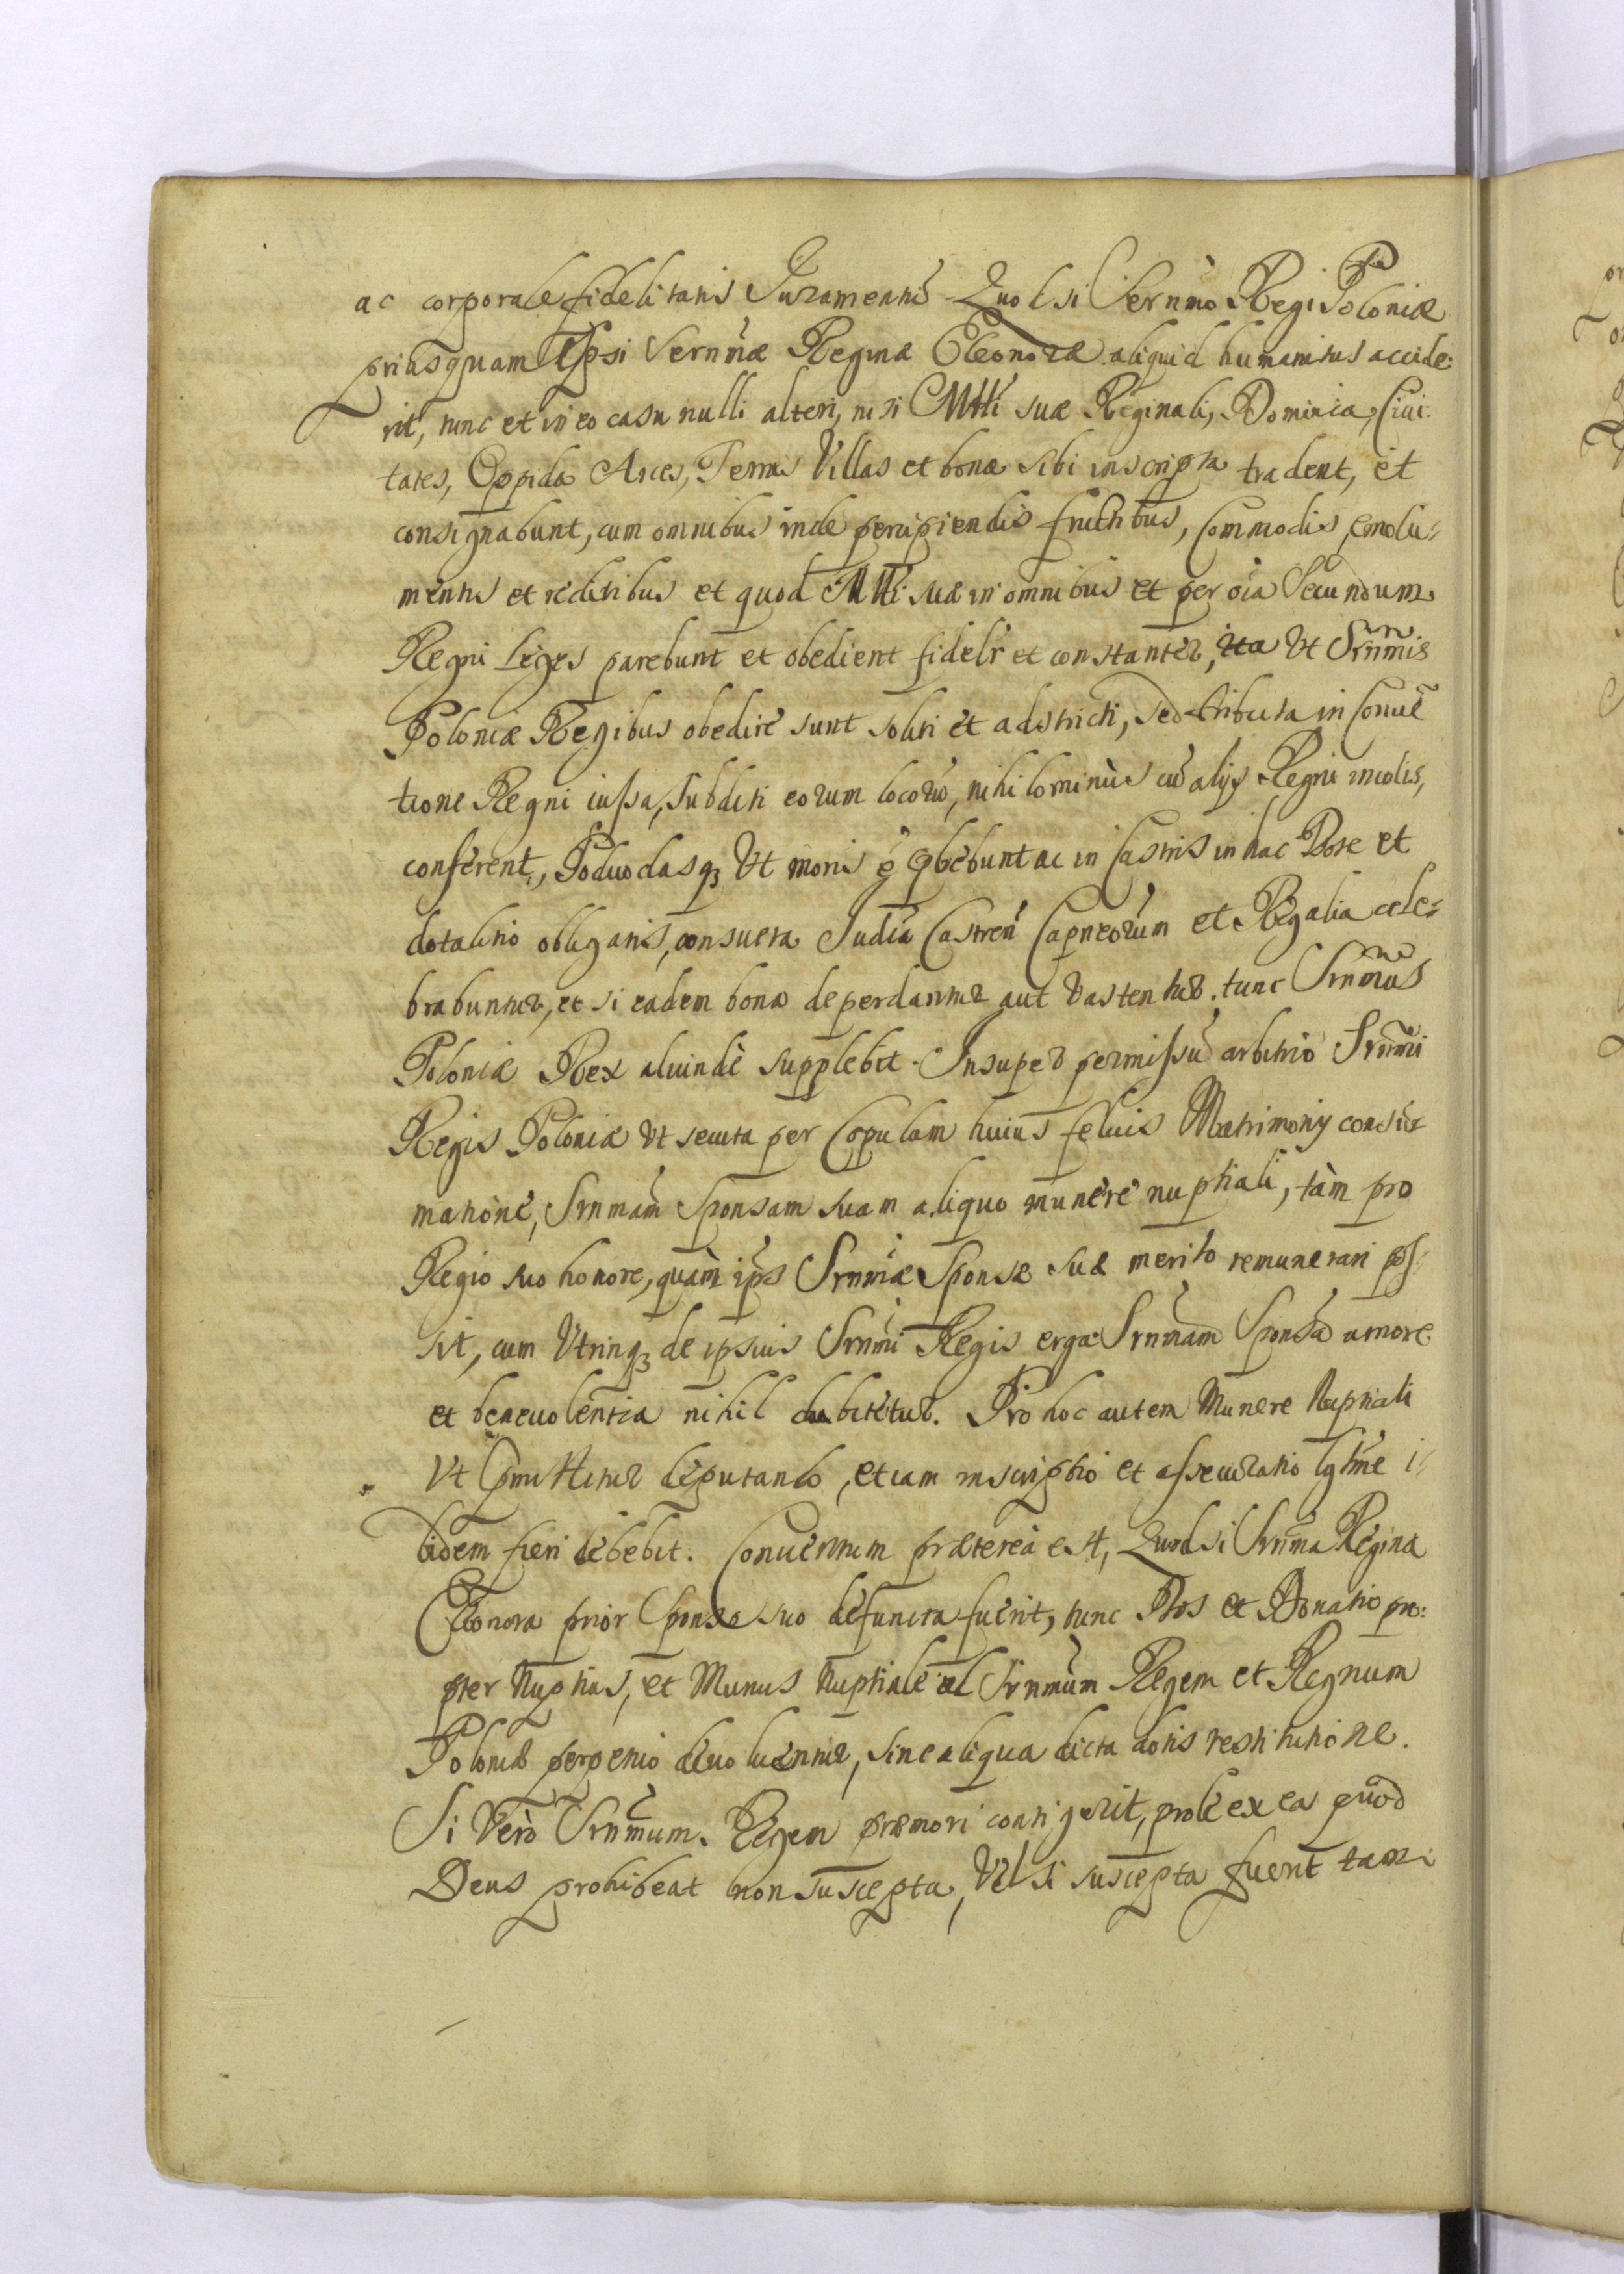 ac corporale fidelitatis Juramentũ Quod si Sernmo Regi Poloniæ
priusquam Ipsi Sernmæ Reginæ Eleonoræ aliquid humanitus accide:
rit, tunc et in eo casu nulli alteri, nisi Mtti suæ Reginali, Dominia, Ciui:
tates, Oppida Arces, Terras Villas et bona sibi inscripta tradent, et
consignabunt, cum omnibus inde percipiendis fructibus, Commodis, emolu:
mentis et reditibus et quod Mtti suæ in omnibus et per oîa Secundum
Regni Leges parebunt et obedient fidelr et constanter, ita Vt Srnmis
Poloniæ Regibus obedire sunt soliti et adstricti, sed tributa in Conuẽ
tione Regni iussa, Subditi eorum locorũ, nihilominùs cũ alijs Regni incolis,
conferent, Poduodasq3 Vt moris ẽ phẽbunt ac in Castris in hac Dote et
dotalitio obligatis, consueta Judia Castreñ Capneorum et Regalia cele:
brabuntur, et si eadem bona deperdantur aut Vastentur. tunc Srnmus
Poloniæ Rex aliundè supplebit. Insuper permissũ arbitrio Srnmi
Regis Poloniæ Vt secuta per Copulam huius felicis Matrimonij consũ
matione, Srnmam Sponsam suam aliquo munere nuptiali, tàm pro
Regio suo honore, quàm ips Srnmæ Sponsæ suæ merito remunerari pos:
sit, cum Vtrinq3 de ipsius Srnmi Regis erga Srnmam Sponsã amore
et beneuolentia nihil dubitetur. Pro hoc autem Munere Nuptiali
Vt pmittitur deputando, etiam inscriptio et assecuratio lgtme i:
bidem fieri debebit. Conuentum præterea est, Quod si Srnma Regina
Eleonora prior Sponso suo defuncta fuerit, tunc Dos et Donatio pro:
pter Nuptias, et Munus Nuptiale ad Srnmum Regem et Regnum
Poloniæ perpetuo deuoluentur, sine aliqua dicta dotis restitutione.
Si Verò Srnmum Regem præmori contigerit, prole ex ea quod
Deus prohibeat non suscepta, Vel si suscepta fuerit tam